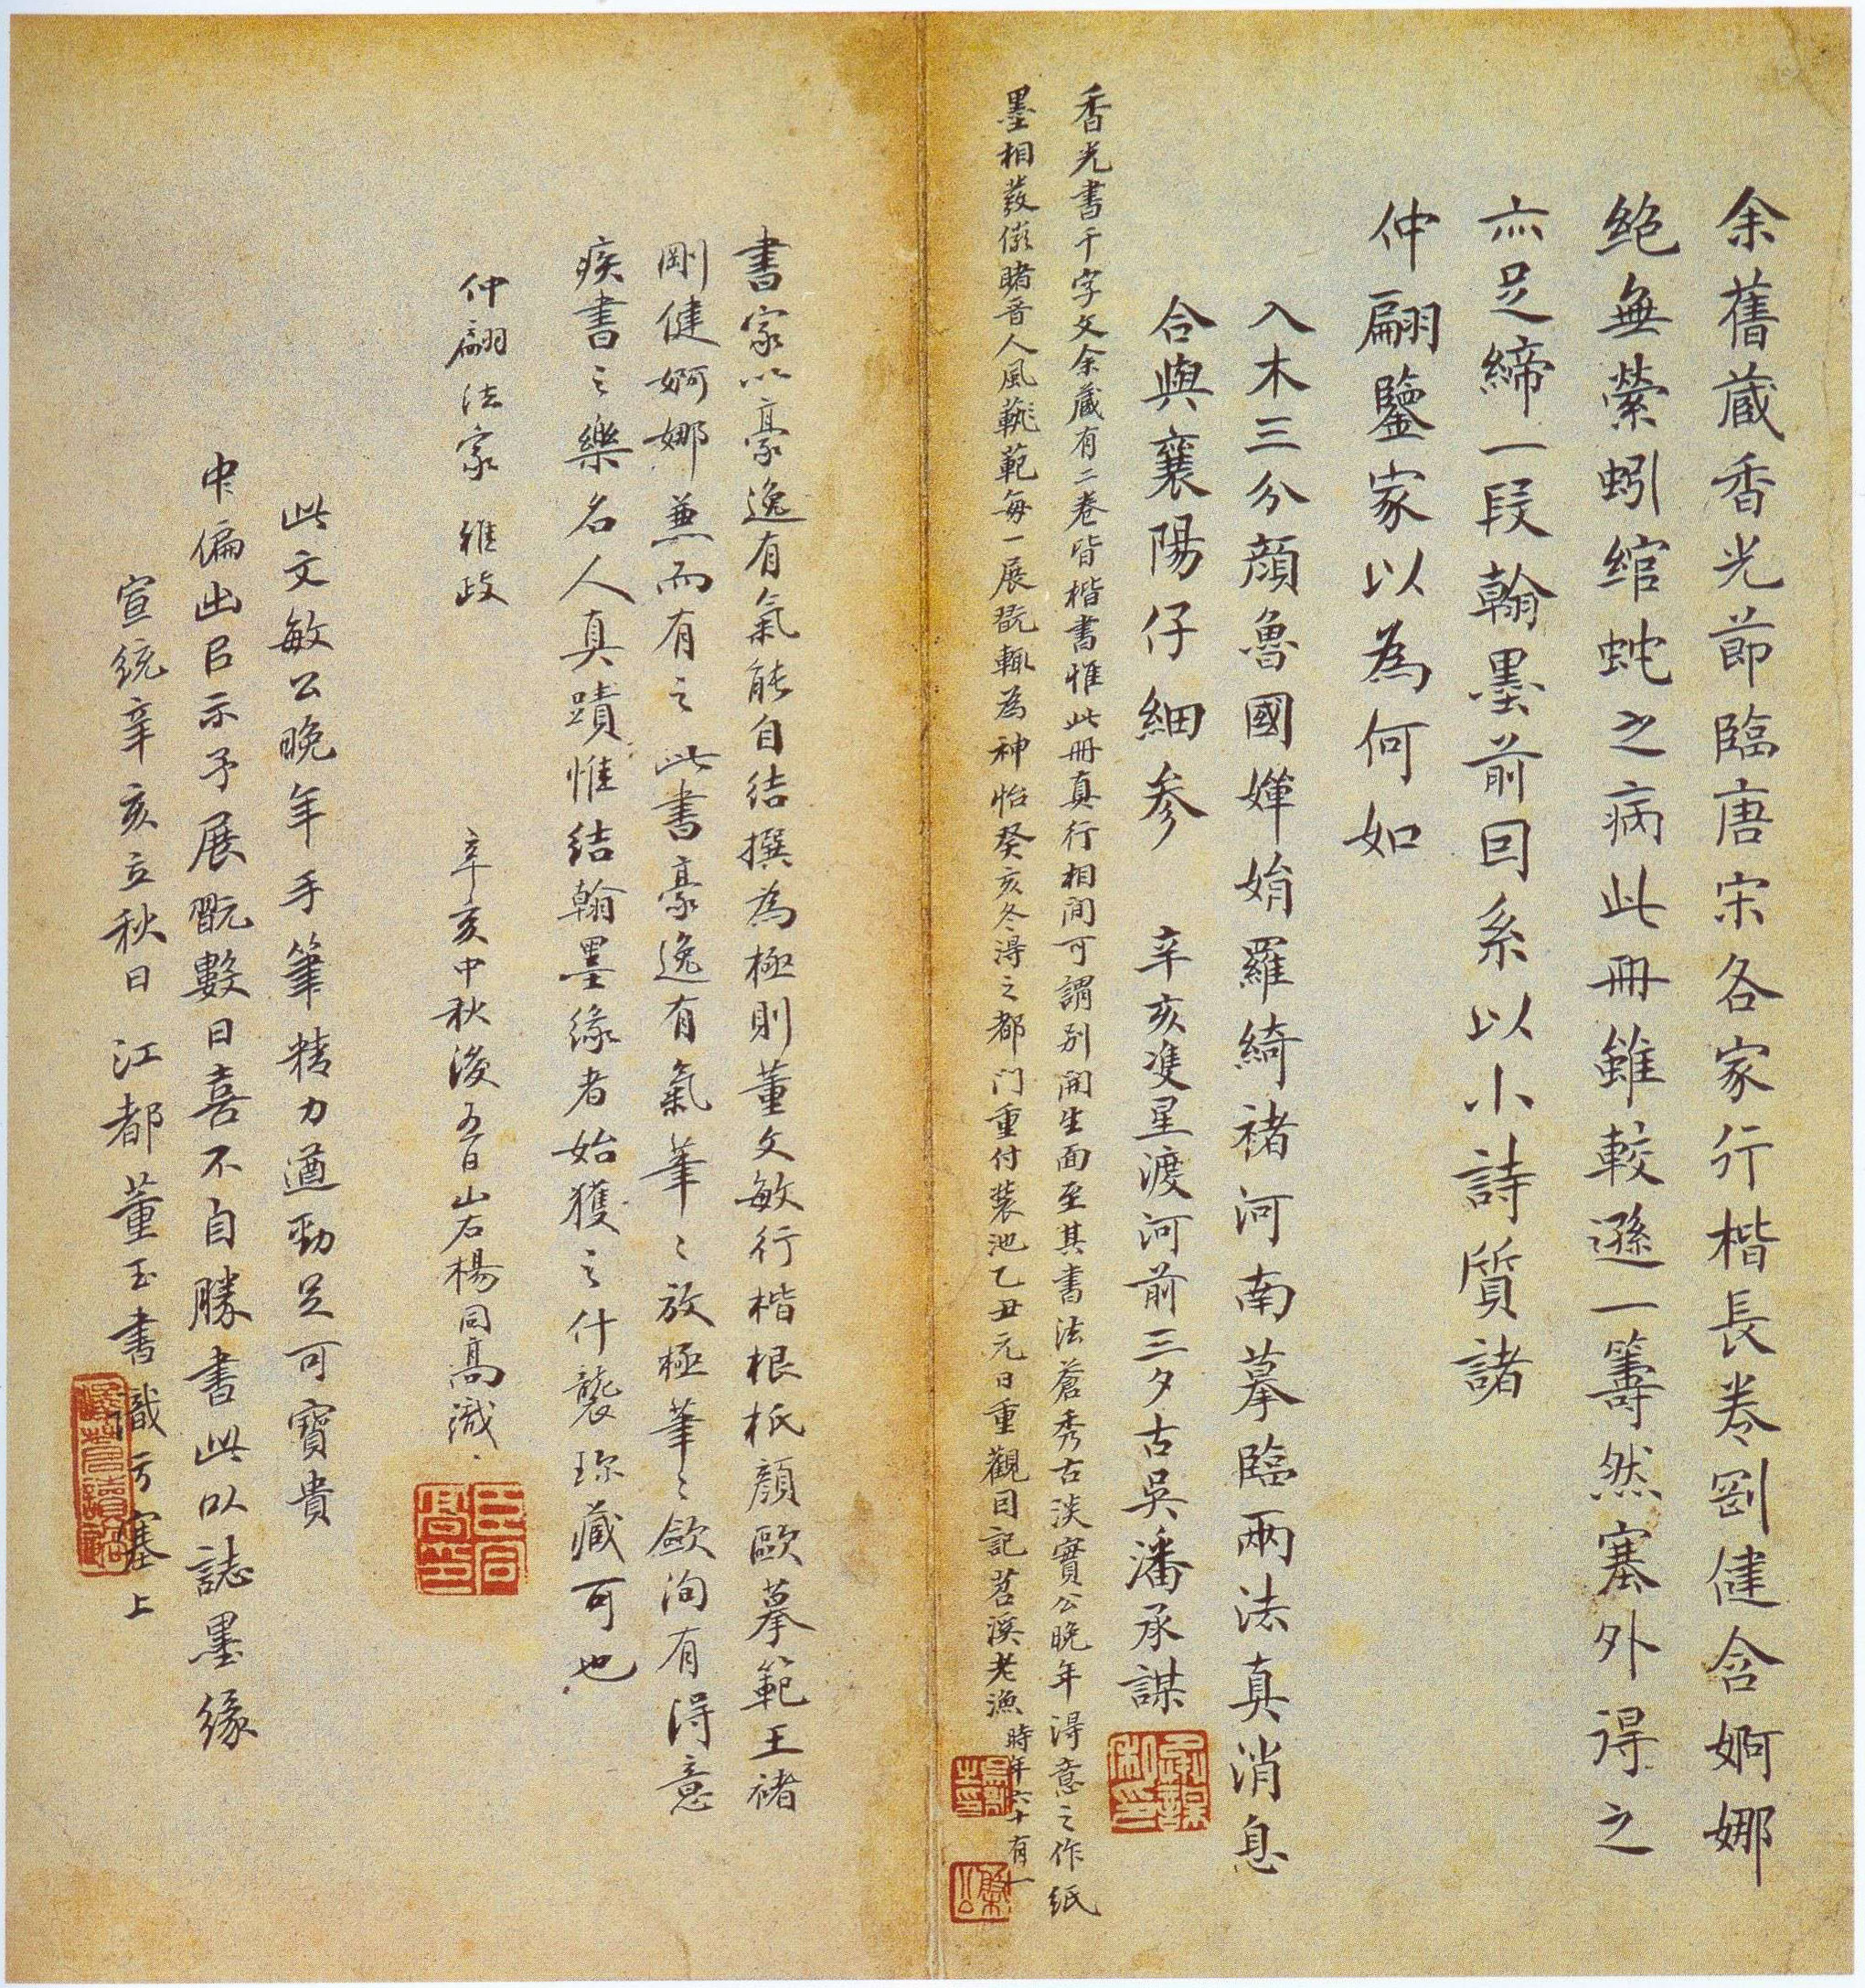 余舊蔵香光節臨唐宋各家行楷長卷剛健含婀娜
絶無縈蚓綰蛇之病此冊雖較遜一籌然塞外得之
亦足締一段翰墨前因系以小詩質諸
仲翮鑒家以為何如
入木三分顔魯國嬋娟羅綺褚河南摹臨兩法真消息
合與襄陽仔細参 辛亥雙星渡河前三夕古吳潘承謀
香光書千字文余蔵有二卷皆楷書惟此冊真行相間可謂別開生面至其書法蒼秀古淡實公晚年得意之作紙
墨相發儼睹晉人風軌範每一展翫輒為神怡癸亥冬得之都門重付裝池乙丑元日重觀因記苕溪老漁時年六十有一
書家以豪逸有氣能自結撰為極則董文敏行楷根柢顔歐摹範王褚
剛健婀娜兼而有之此書豪逸有氣筆〻放極筆〻歛洵有得意
疾書之樂名人真蹟惟結翰墨缘者始獲之什襲珎藏可也
仲翮法家 雅政
辛亥中秋後五日山右楊同髙識
此文敏公晚年手筆精力遒勁足可寶貴
中偏出㠯示予展翫數日喜不自勝書此以誌墨缘
宣統辛亥立秋日 江都董玉書識于塞上